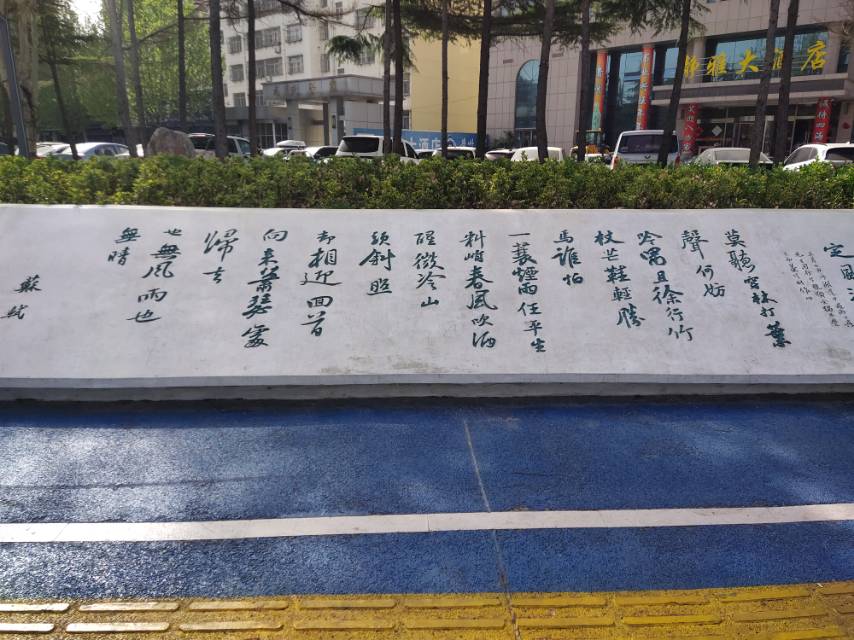 雅大酒店
定風
莫聽穿林打葉
聲何妨
吟嘯且徐行竹
杖芒鞋輕勝
馬誰怕
一蓑煙雨任平生
料峭春風吹酒
醒微冷山
頭斜照
却相迎回首
向來蕭瑟處
歸去
也無風雨也
無晴
蘇軾